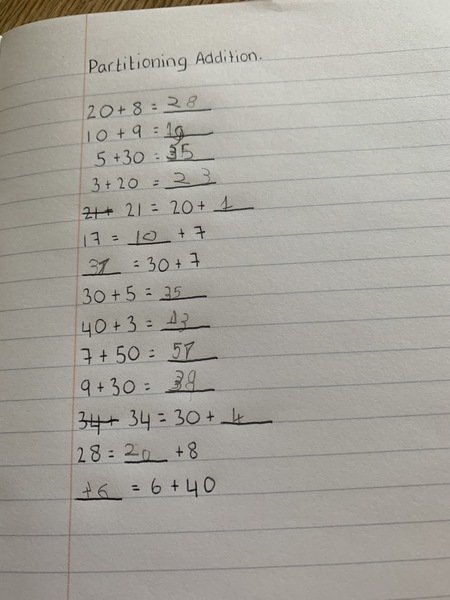 Partitioning Addition.
20 + 8 = 28
10 + 9 = 19
5 + 30 = 35
3 + 20 = 23
21+ 21 = 20 + 1
17 = 10 + 7
37 = 30 + 7
30 + 5 = 35
40 + 3 = 43
7 + 50 = 57
9 + 30 = 39
34+ 34 = 30 + 4
28 = 20 + 8
46 = 6 + 40